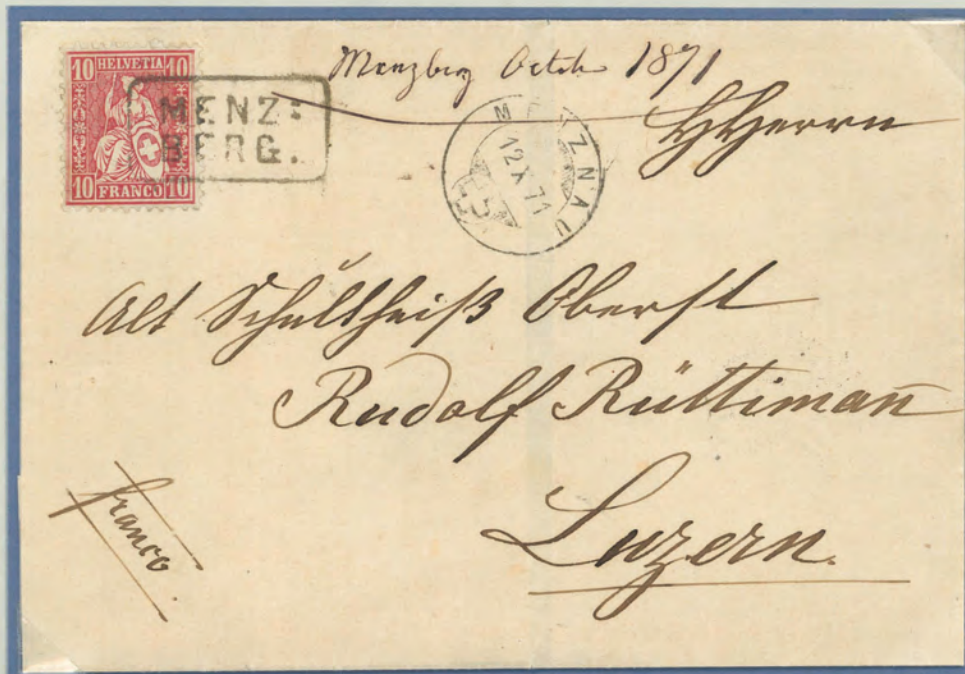 10 HELVETIA 10
10 FRANCO 10
MENZ:
BERG.
Menzberg Octob 1871
MENZNAU
12 X 71
HHerrn
Alt Schultheiß Oberst
Rudolf Rüttiman̄
Luzern.
franco